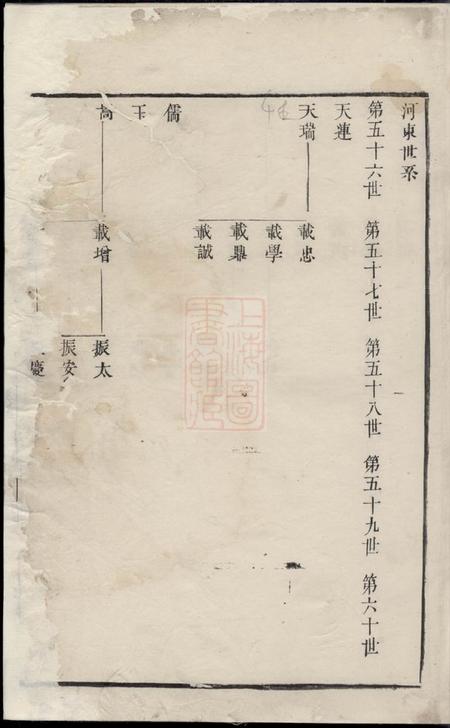 河東世系
第五十六世 第五十七世 第五十八世 第五十九世 第六十世
天連
天瑞 載忠
載學
載鼎
載誠
儒
玉
高 載增 振太
振安
慶
上海圖書館藏